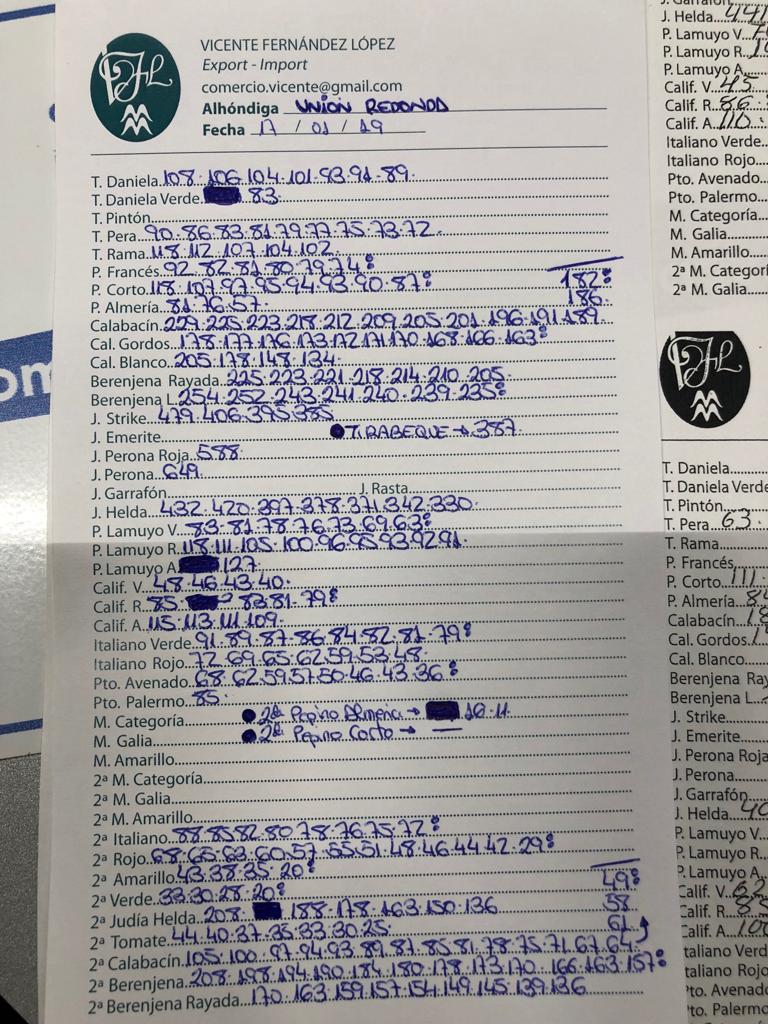 VICENTE FERNÁNDEZ LÓPEZ
Export - Import
comercio.vicente@gmail.com
Alhóndiga UNION REDONDA
Fecha 17 / 01 / 19
T. Daniela 108·106·104·101·93·91·89·
T. Daniela Verde 83·
T. Pintón
T. Pera 90·86·83·81·79·77·75·73·72·
T. Rama 118·112·107·104·102·
P. Francés 92·82·81·80·79·74
P. Corto 118·107·97·95·94·93·90·87 182
P. Almería 81·76·57· 186
Calabacín 229·225·223·218·212·209·205·201·196·191·189
Cal. Gordos 178·177·176·173·172·171·170·168·166·163
Cal. Blanco 205·178·148·134·
Berenjena Rayada 225·223·221·218·214·210·205·
Berenjena L 254·252·243·241·240·239·235
J. Strike 479·406·395·385
J. Emerite TIRABEQUE → 387
J. Perona Roja 588
J. Perona 649
J. Garrafón J. Rasta
J. Helda 432·420·397·378·371·342·330·
P. Lamuyo V. 83·81·78·76·73·69·63
P. Lamuyo R. 118·111·105·100·96·95·93·92·91·
P. Lamuyo A. 127·
Calif. V. 48·46·43·40·
Calif. R. 85· 83·81·79
Calif. A. 115·113·111·109·
Italiano Verde 91·89·87·86·84·82·81·79
Italiano Rojo 72·69·65·62·59·53·48·
Pto. Avenado 68·62·59·57·50·46·43·36
Pto. Palermo 85·
M. Categoría 2ª Pepino Almeria → 10·11
M. Galia 2ª Pepino Corto → —
M. Amarillo
2ª M. Categoría
2ª M. Galia
2ª M. Amarillo
2ª Italiano 88·85·82·80·78·76·75·72
2ª Rojo 68·65·63·60·57·55·51·48·46·44·42·29
2ª Amarillo 43·38·35·20
2ª Verde 33·30·28·20 49
2ª Judía Helda 208· 188·178·163·150·136 58
2ª Tomate 44·40·37·35·33·30·25· 61
2ª Calabacín 105·100·97·94·93·89·87·85·81·78·75·71·67·64
2ª Berenjena 208·198·194·190·184·180·178·173·170·166·163·157
2ª Berenjena Rayada 170·163·159·157·154·149·145·139·136
J. Helda
P. Lamuyo V.
P. Lamuyo R.
P. Lamuyo A.
Calif. V. 45
Calif. R. 86
Calif. A. 110
Italiano Verde
Italiano Rojo
Pto. Avenado
Pto. Palermo
M. Categoría
M. Galia
M. Amarillo
2ª M. Categorí
2ª M. Galia
T. Daniela
T. Daniela Verde
T. Pintón
T. Pera 63
T. Rama
P. Francés
P. Corto 111
P. Almería
Calabacín
Cal. Gordos
Cal. Blanco
Berenjena Ray
Berenjena L
J. Strike
J. Emerite
J. Perona Roja
J. Perona
J. Garrafón
J. Helda
P. Lamuyo V.
P. Lamuyo R.
P. Lamuyo A.
Calif. V. 62
Calif. R.
Calif. A. 100
Italiano Verde
Italiano Rojo
Pto. Avenado
Pto. Palermo
M. Categoría